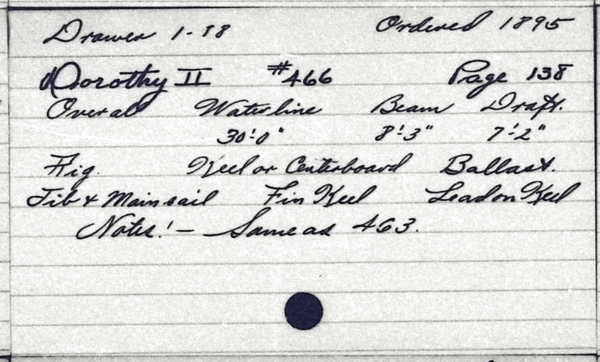 Drawer 1-88 Ordered 1895
Dorothy II #466 Page 138
Overal Waterline Beam Draft.
30'-0" 8'-3" 7'-2"
Rig. Keel or Centerboard Ballast.
Jib & Mainsail Fin Keel Lead on Keel
Notes! — Same as 463.